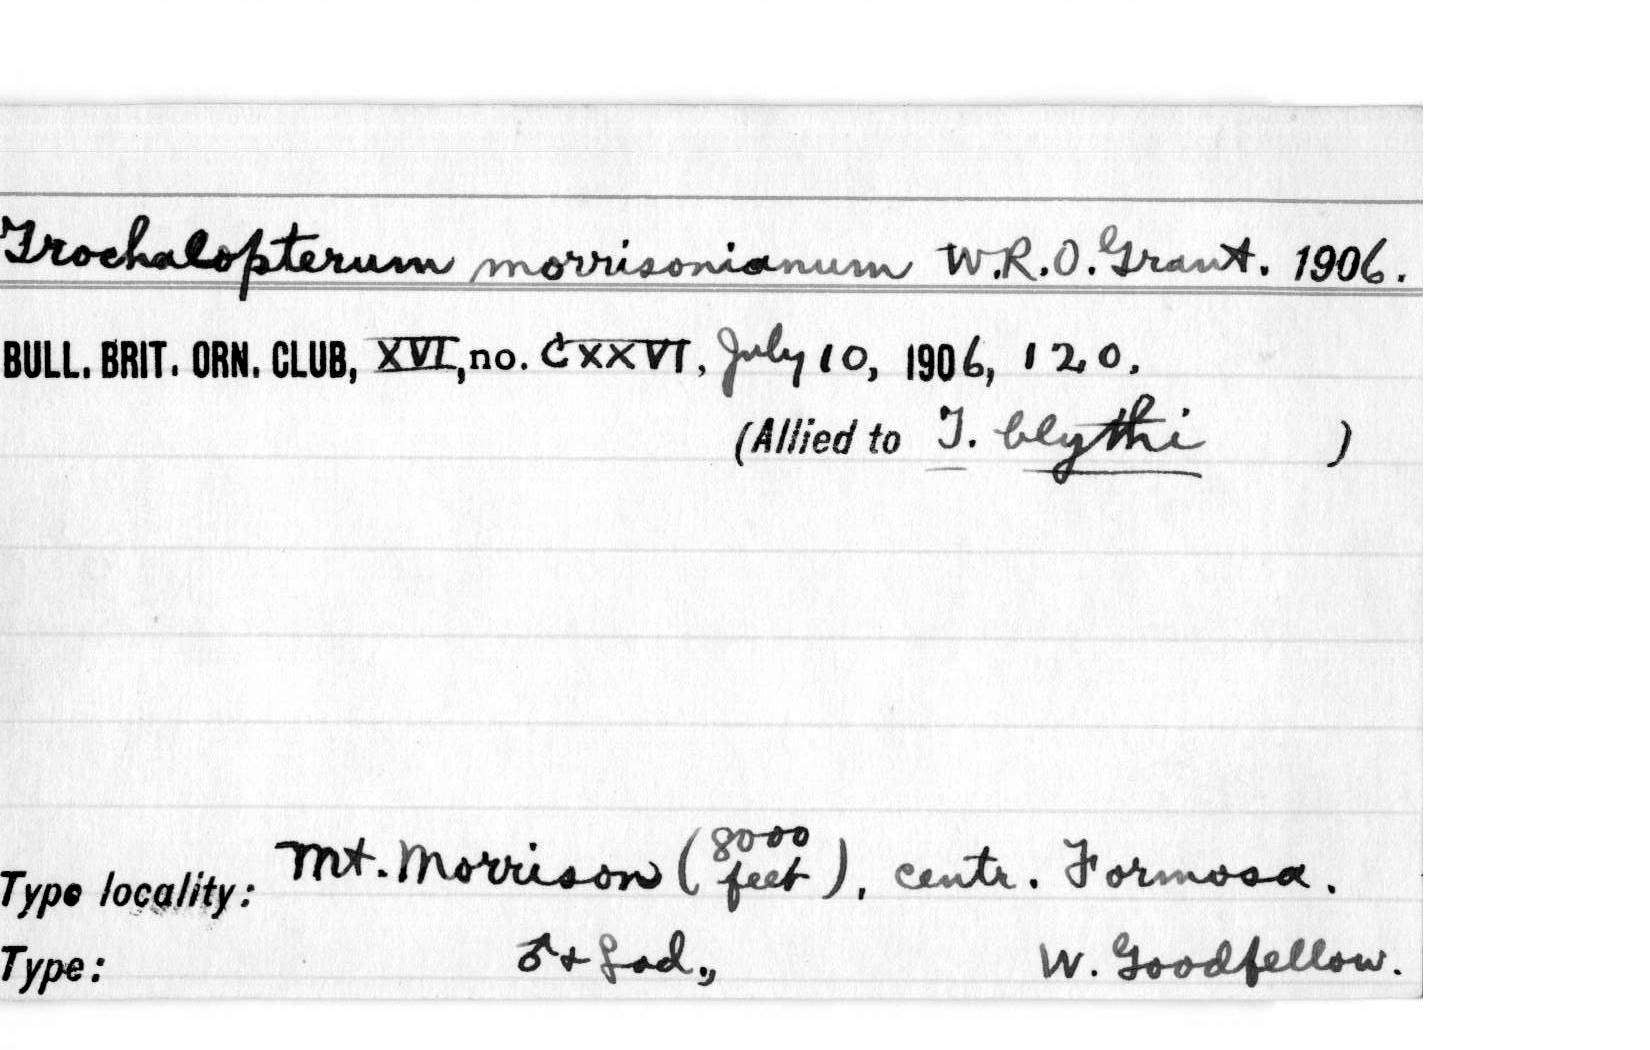 Trochalopterum morrisonianum W.R.O. Grant. 1906.
BULL. BRIT. ORN. CLUB, XVI, no. CXXVI, July 10, 1906, 120.
(Allied to T. blythi )
Type locality: Mt. Morrison (8000 feet), centr. Formosa.
Type: ♂ + ♀ ad., W. Goodfellow.